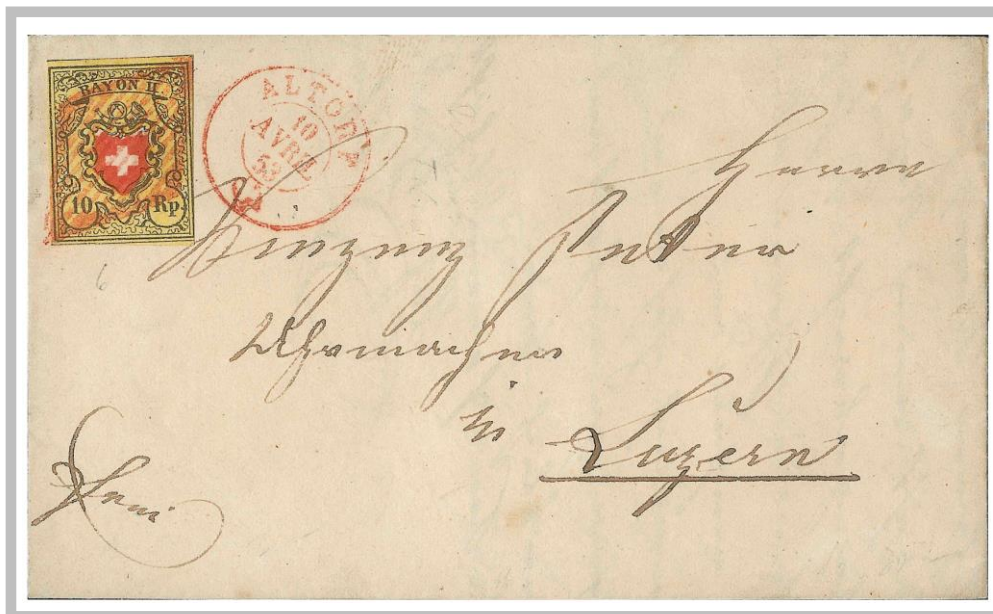 RAYON II
10 Rp.
ALTORF
10
AVRIL
52
Herrn
Peter
Uhrmacher
in
Luzern
Frei